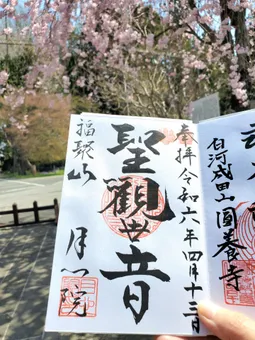 白河成田山圓養寺
奉拝 令和六年四月十三日
聖觀世音
福聚山 月心院